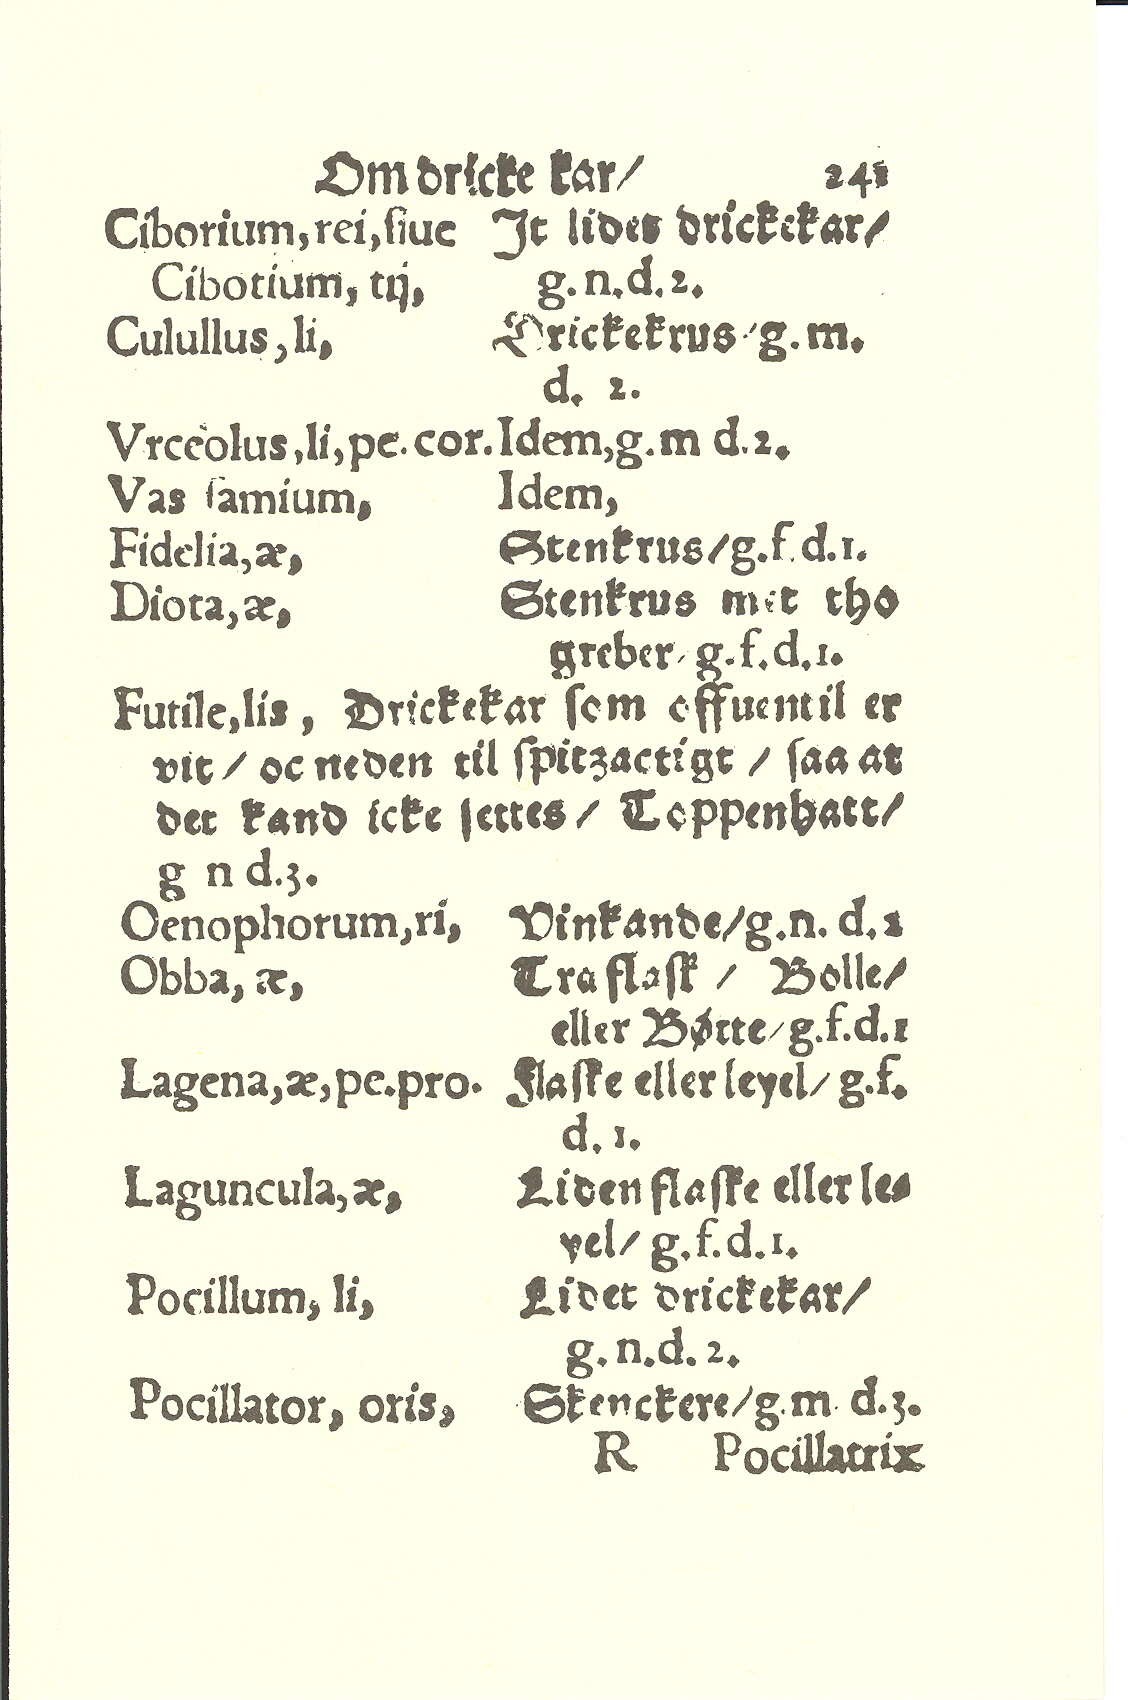 Om dricke kar/ 241
Ciborium, rei, siue It lidet drickekar/
Cibotium, tij, g. n. d. 2.
Culullus, li, Drickekrus/ g. m.
d. 2.
Vrceolus, li, pe. cor. Idem, g. m d. 2.
Vas samium, Idem,
Fidelia, æ, Stenkrus/ g. f. d. 1.
Diota, æ, Stenkrus met tho
greber/ g. f. d. 1.
Futile, lis, Drickekar som offuentil er
vit/ oc neden til spitzactigt/ saa at
det kand icke settes/ Toppenhatt/
g n d. 3.
Oenophorum, ri, Vinkande/ g. n. d. 2
Obba, æ, Træ flask/ Bolle/
eller Bøtte/ g. f. d. 1
Lagena, æ, pe. pro. Flaske eller leyel/ g. f.
d. 1.
Laguncula, æ, Liden flaske eller le-
yel/ g. f. d. 1.
Pocillum, li, Lidet drickekar/
g. n. d. 2.
Pocillator, oris, Skenckere/ g. m. d. 3.
R Pocillatrix